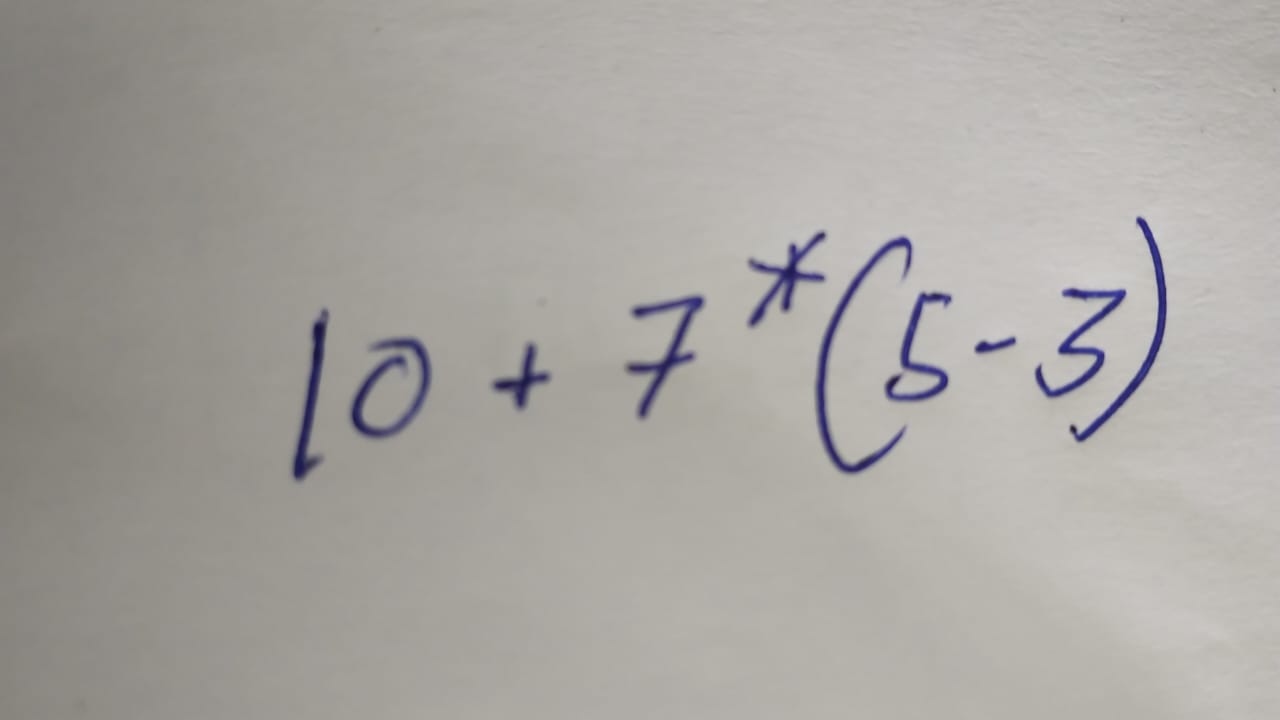 10 + 7*(5-3)